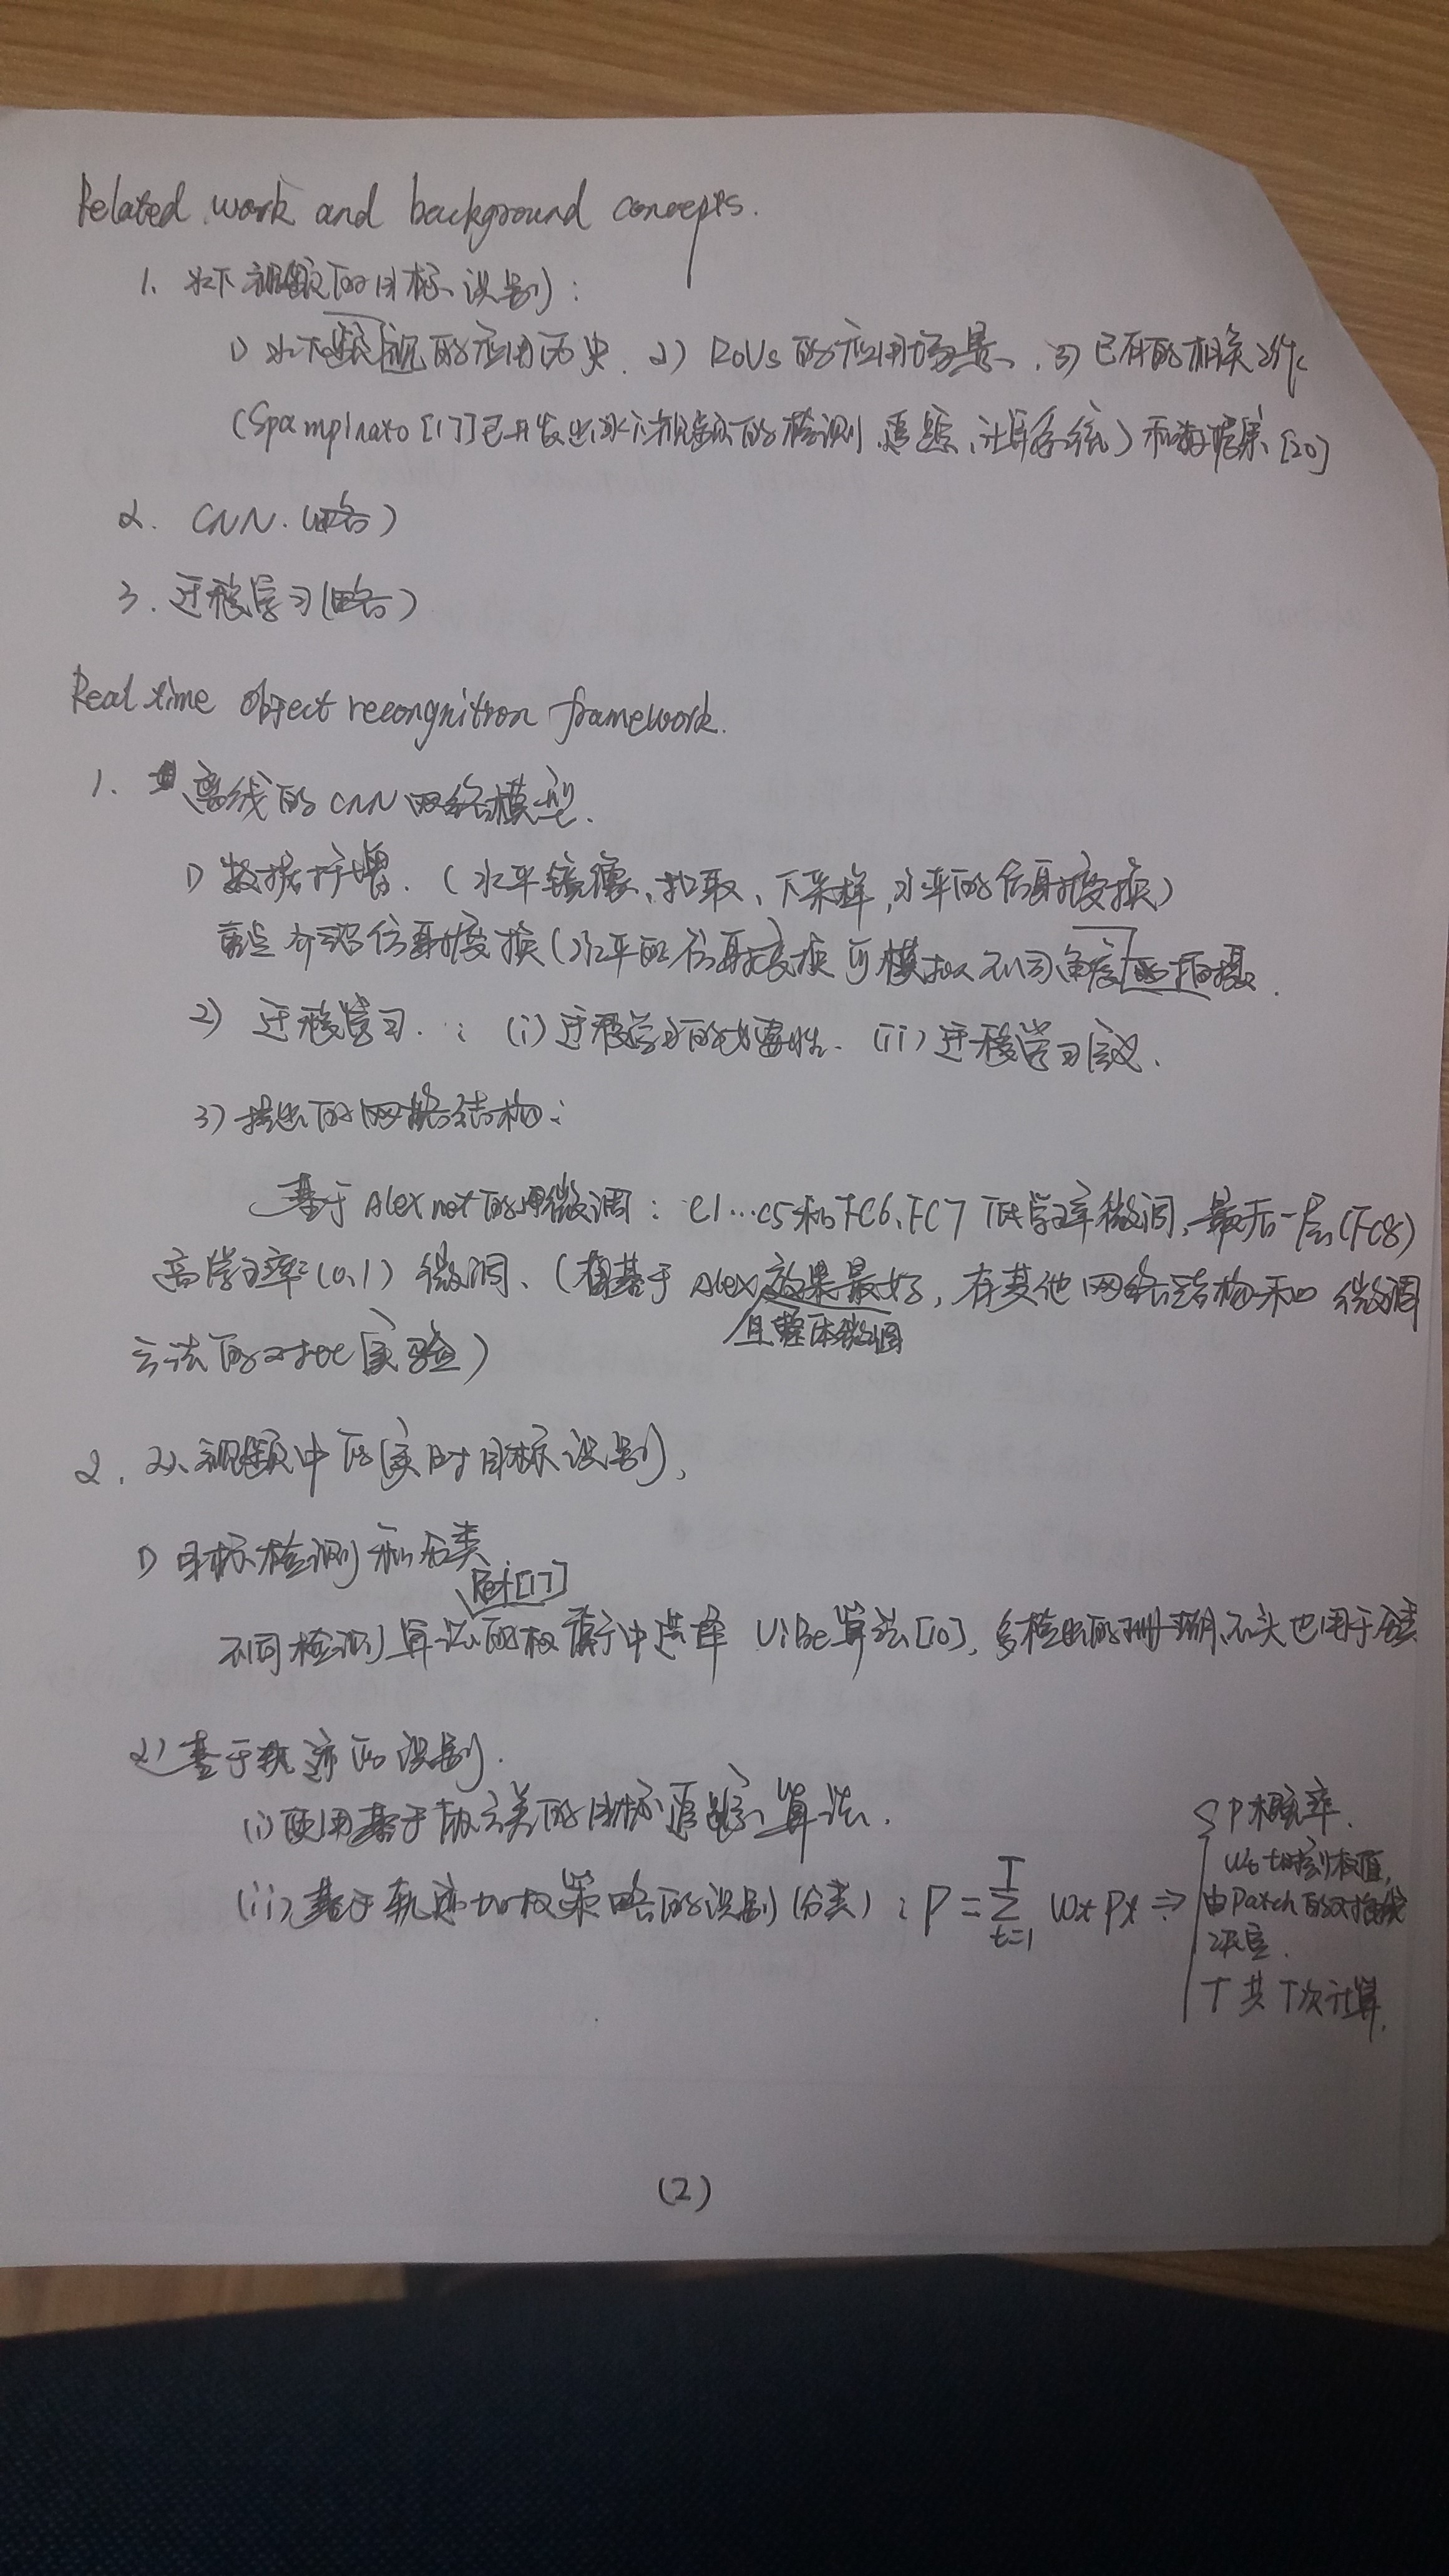 Related work and background concepts.
1. 水下视频的目标识别:
1) 水下视频的应用历史. 2) ROVs 的应用场景、3) 已有的相关工作
(Spamplnato [17]已开发出水下视频的检测、追踪、计算系统) 和数据集 [20]
2. CNN. (略)
3. 迁移学习(略)
Real time object recongnition framework.
1. 离线的 CNN 网络模型.
1) 数据扩增. (水平镜像、扣取、下采样, 水平的仿射变换)
重点介绍仿射变换(水平的仿射变换可模拟不同角度的拍摄.
2) 迁移学习. : (i) 迁移学习的必要性. (ii) 迁移学习定义.
3) 提出的网络结构:
基于 Alexnet 的微调: C1...C5和FC6、FC7 低学习率微调, 最后一层(FC8)
高学习率(0.1) 微调、(基于 Alex 效果最好, 有其他网络结构和 微调
且整体微调
方法的对比实验)
2. 从视频中的实时目标识别、
1) 目标检测和分类
Ref[17]
不同检测算法的权衡中选择 ViBe算法[10], 多检出的珊瑚、石头也用于分类
2) 基于轨迹的识别.
(i) 使用基于协方差的目标追踪算法.
(ii) 基于轨迹加权策略的识别(分类): P = \sum_{t=1}^{T} w_t P_t ⇒
P 概率.
w_t t时刻权值,
由patch的对角线
决定.
T 共 T次计算.
(2)